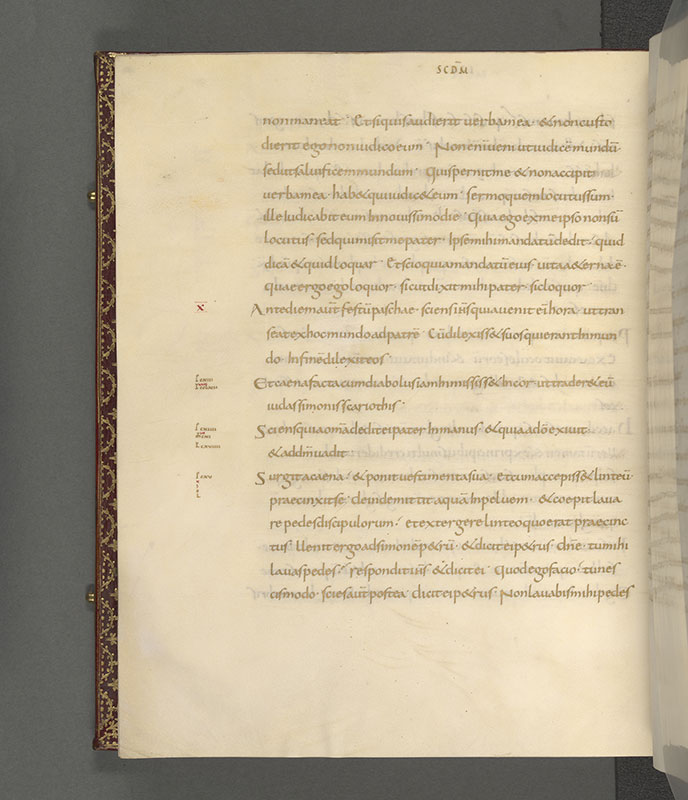 SCDM̄
non maneat · Et si quis audierit verba mea · & non custo
dierit ego non iudico eum · Non enī veni ut iudicē mundū ·
sed ut salvificem mundum · Qui spernit me & non accipit
verba mea · hab& qui iudic& eum · sermo quem locutus sum ·
ille iudicabit eum In novissimo die · Quia ego ex me ipso non sū
locutus · sed qui misit me pater · Ipse mihi mandatū dedit · quid
dicā & quid loquar · Et scio quia mandatū eius · vita aeterna ē ·
quae ergo ego loquor · sicut dixit mihi pater · sic loquor ·
X
Ante diem aūt festū paschae · sciens ih̄s quia uenit ei hora · ut tran
seat ex hoc mundo ad patrē · Cū dilexiss& suos qui erant In mun
do · In finē dilexit eos ·
Et caena facta cum diabolus iam Imississ& In cor · ut trader& eū
iudas simonis scariothis ·
Sciens quia omā dedit ei pater In manus · & quia a dō exivit
& ad dm̄ uadit
Surgit a caena · & ponit vestimenta sua · et cum accepiss& linteū
praecinxit se · deinde mittit aquā In pelvem · & coepit lava
re pedes discipulorum · et extergere linteo quo erat praecinc
tus · Uenit ergo ad simonē p&rū · & dicit ei p&rus · dn̄e · tu mihi
lavas pedes · respondit ih̄s & dicit ei · Quod ego facio · tu nes
cis modo · scies aūt postea · dicit ei p&rus · Non lavabis mihi pedes